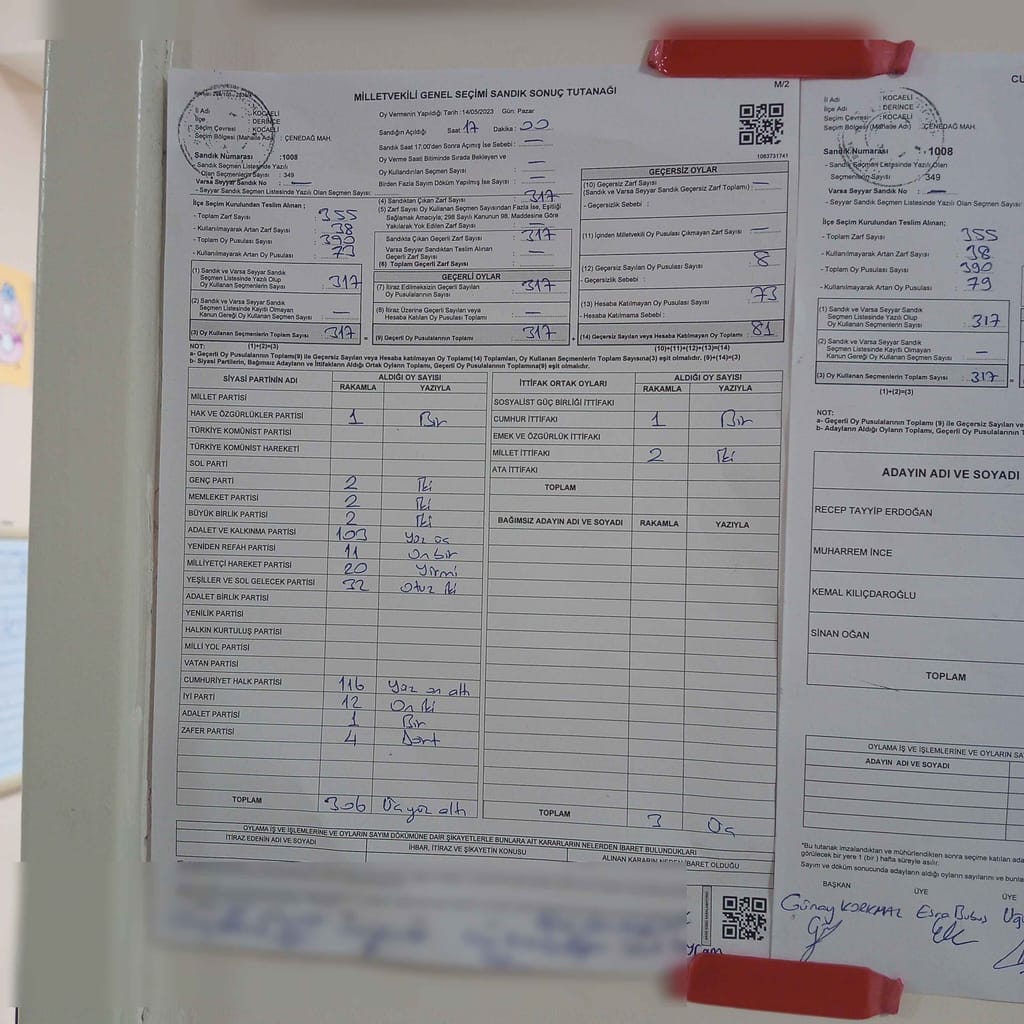 M/2
MİLLETVEKİLİ GENEL SEÇİMİ SANDIK SONUÇ TUTANAĞI
İl Adı : KOCAELİ
İlçe Adı : DERİNCE
Seçim Çevresi : KOCAELİ
Seçim Bölgesi (Mahalle Adı) : ÇENEDAĞ MAH.
Sandık Numarası : 1008
- Sandık Seçmen Listesinde Yazılı
Olan Seçmenlerin Sayısı : 349
Varsa Seyyar Sandık No : —
- Seyyar Sandık Seçmen Listesinde Yazılı Olan Seçmen Sayısı:
Oy Vermenin Yapıldığı Tarih :14/05/2023 Gün: Pazar
Sandığın Açıldığı Saat: 17 Dakika : 00
Sandık Saat 17.00'den Sonra Açımış İse Sebebi : —
Oy Verme Saati Bitiminde Sırada Bekleyen ve
Oy Kullandırılan Seçmen Sayısı : —
Birden Fazla Sayım Döküm Yapılmış İse Sayısı : —
1063731741
İlçe Seçim Kurulundan Teslim Alınan ;
- Toplam Zarf Sayısı : 355
- Kullanılmayarak Artan Zarf Sayısı : 38
- Toplam Oy Pusulası Sayısı : 390
- Kullanılmayarak Artan Oy Pusulası : 73
(1) Sandık ve Varsa Seyyar Sandık
Seçmen Listesinde Yazılı Olup
Oy Kullanan Seçmenlerin Sayısı : 317
(2) Sandık ve Varsa Seyyar Sandık
Seçmen Listesinde Kaydı Olmayan
Kanun Gereği Oy Kullanan Seçmen Sayısı : —
(3) Oy Kullanan Seçmenlerin Toplam Sayısı : 317
(1)+(2)=(3)
(4) Sandıktan Çıkan Zarf Sayısı : 317
(5) Zarf Sayısı Oy Kullanan Seçmen Sayısından Fazla İse, Eşitliği
Sağlamak Amacıyla; 298 Sayılı Kanunun 98. Maddesine Göre
Yakılarak Yok Edilen Zarf Sayısı : —
Sandıkta Çıkan Geçerli Zarf Sayısı : 317
Varsa Seyyar Sandıktan Teslim Alınan
Geçerli Zarf Sayısı : —
(6) Toplam Geçerli Zarf Sayısı :
GEÇERLİ OYLAR
(7) İtiraz Edilmeksizin Geçerli Sayılan
Oy Pusulalarının Sayısı : 317
(8) İtiraz Üzerine Geçerli Sayılan veya
Hesaba Katılan Oy Pusulası Toplamı : —
(9) Geçerli Oy Pusulalarının Toplamı : 317
GEÇERSİZ OYLAR
(10) Geçersiz Zarf Sayısı : —
(Sandık ve Varsa Seyyar Sandık Geçersiz Zarf Toplamı)
- Geçersizlik Sebebi :
(11) İçinden Milletvekili Oy Pusulası Çıkmayan Zarf Sayısı : —
(12) Geçersiz Sayılan Oy Pusulası Sayısı : 8
- Geçersizlik Sebebi :
(13) Hesaba Katılmayan Oy Pusulası Sayısı : 73
- Hesaba Katılmama Sebebi :
(14) Geçersiz Sayılan veya Hesaba Katılmayan Oy Toplamı : 81
(10)+(11)+(12)+(13)=(14)
NOT:
a- Geçerli Oy Pusulalarının Toplamı(9) ile Geçersiz Sayılan veya Hesaba Katılmayan Oy Toplamı(14) Toplamları, Oy Kullanan Seçmenlerin Toplam Sayısına(3) eşit olmalıdır. (9)+(14)=(3)
b- Siyasi Partilerin, Bağımsız Adayların ve İttifakların Aldığı Ortak Oyların Toplamı, Geçerli Oy Pusulalarının Toplamına(9) eşit olmalıdır.
SİYASİ PARTİNİN ADI ALDIĞI OY SAYISI
RAKAMLA YAZIYLA
MİLLET PARTİSİ
HAK VE ÖZGÜRLÜKLER PARTİSİ 1 Bir
TÜRKİYE KOMÜNİST PARTİSİ
TÜRKİYE KOMÜNİST HAREKETİ
SOL PARTİ
GENÇ PARTİ 2 İki
MEMLEKET PARTİSİ 2 İki
BÜYÜK BİRLİK PARTİSİ 2 İki
ADALET VE KALKINMA PARTİSİ 103 Yüz üç
YENİDEN REFAH PARTİSİ 11 On bir
MİLLİYETÇİ HAREKET PARTİSİ 20 Yirmi
YEŞİLLER VE SOL GELECEK PARTİSİ 32 Otuz iki
ADALET BİRLİK PARTİSİ
YENİLİK PARTİSİ
HALKIN KURTULUŞ PARTİSİ
MİLLİ YOL PARTİSİ
VATAN PARTİSİ
CUMHURİYET HALK PARTİSİ 116 Yüz on altı
İYİ PARTİ 12 On iki
ADALET PARTİSİ 1 Bir
ZAFER PARTİSİ 4 Dört
TOPLAM 306 Üçyüz altı
İTTİFAK ORTAK OYLARI ALDIĞI OY SAYISI
RAKAMLA YAZIYLA
SOSYALİST GÜÇ BİRLİĞİ İTTİFAKI
CUMHUR İTTİFAKI 1 Bir
EMEK VE ÖZGÜRLÜK İTTİFAKI
MİLLET İTTİFAKI 2 İki
ATA İTTİFAKI
TOPLAM
BAĞIMSIZ ADAYIN ADI VE SOYADI RAKAMLA YAZIYLA
TOPLAM 3 Üç
OYLAMA İŞ VE İŞLEMLERİNE VE OYLARIN SAYIM DÖKÜMÜNE DAİR ŞİKAYETLERLE BUNLARA AİT KARARLARIN NELERDEN İBARET BULUNDUKLARI
İTİRAZ EDENİN ADI VE SOYADI İHBAR, İTİRAZ VE ŞİKAYETİN KONUSU ALINAN KARARIN NEDEN İBARET OLDUĞU
CU
İl Adı : KOCAELİ
İlçe Adı : DERİNCE
Seçim Çevresi : KOCAELİ
Seçim Bölgesi (Mahalle Adı) : ÇENEDAĞ MAH.
Sandık Numarası : 1008
- Sandık Seçmen Listesinde Yazılı Olan
Seçmenlerin Sayısı : 349
Varsa Seyyar Sandık No : —
- Seyyar Sandık Seçmen Listesinde Yazılı Olan Seçmen Sayısı
İlçe Seçim Kurulundan Teslim Alınan;
- Toplam Zarf Sayısı : 355
- Kullanılmayarak Artan Zarf Sayısı : 38
- Toplam Oy Pusulası Sayısı : 390
- Kullanılmayarak Artan Oy Pusulası Sayısı : 79
(1) Sandık ve Varsa Seyyar Sandık
Seçmen Listesinde Yazılı Olup
Oy Kullanan Seçmenlerin Sayısı : 317
(2) Sandık ve Varsa Seyyar Sandık
Seçmen Listesinde Kayıtlı Olmayan
Kanun Gereği Oy Kullanan Seçmen Sayısı : —
(3) Oy Kullanan Seçmenlerin Toplam Sayısı : 317
(1)+(2)=(3)
NOT:
a- Geçerli Oy Pusulalarının Toplamı (9) ile Geçersiz Sayılan ve
b- Adayların Aldığı Oyların Toplamı, Geçerli Oy Pusulalarının T
ADAYIN ADI VE SOYADI
RECEP TAYYİP ERDOĞAN
MUHARREM İNCE
KEMAL KILIÇDAROĞLU
SİNAN OĞAN
TOPLAM
OYLAMA İŞ VE İŞLEMLERİNE VE OYLARIN SA
ADAYIN ADI VE SOYADI
*Bu tutanak imzalandıktan ve mühürlendikten sonra seçime katılan ada
görülecek bir yere 1 (bir) hafta süreyle asılır.
Sayım ve döküm sonucunda adayların aldığı oyların sayılarını ve bunla
BAŞKAN ÜYE ÜYE
Günay KORKMAZ Esra Bubus Uğ